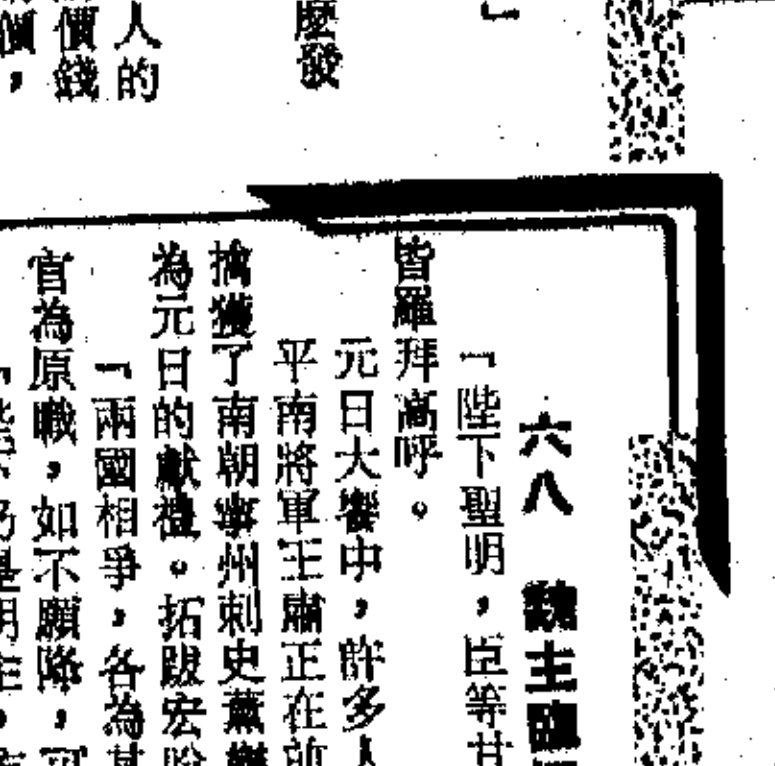 」
麼發
人的
價錢
價，
六八 魏主臨
「陛下聖明，臣等甘
皆羅拜高呼。
元日大饗中，許多人
平南將軍王肅正在前
擒獲了南朝寧州刺史董
為元日的獻禮。拓跋宏
「兩國相爭，各為其
官為原職，如不願降，可
「陛下乃是明主，